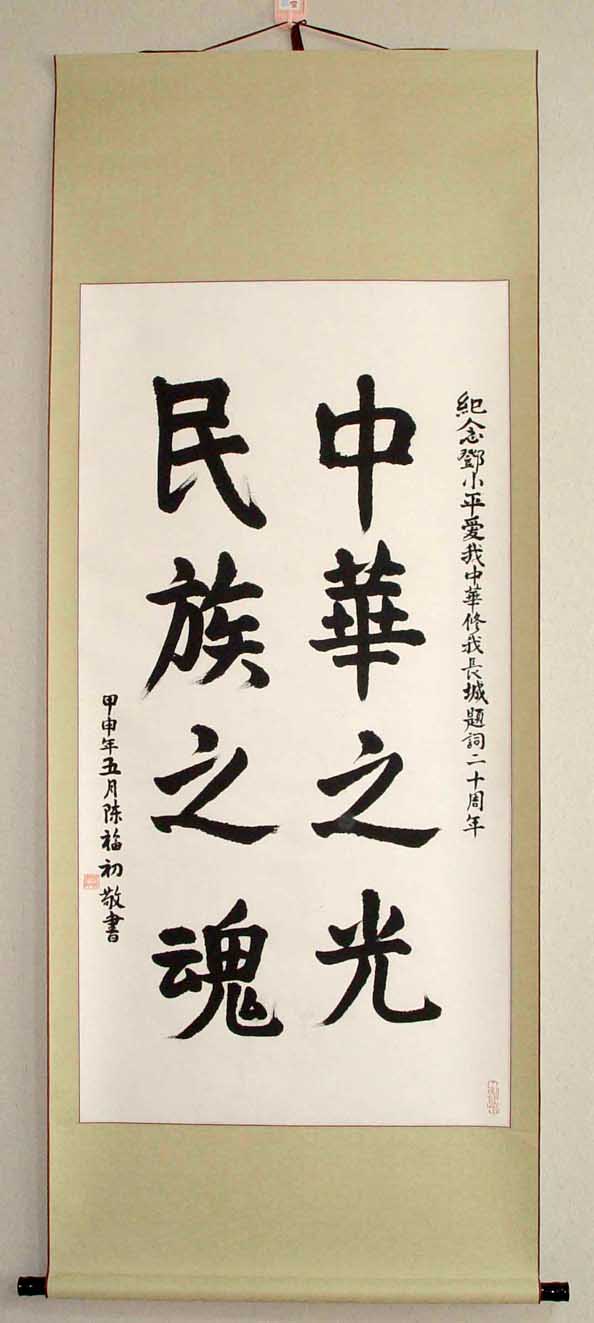 紀念鄧小平爱我中華修我長城題詞二十周年
中華之光
民族之魂
甲申年五月陈福初敬書